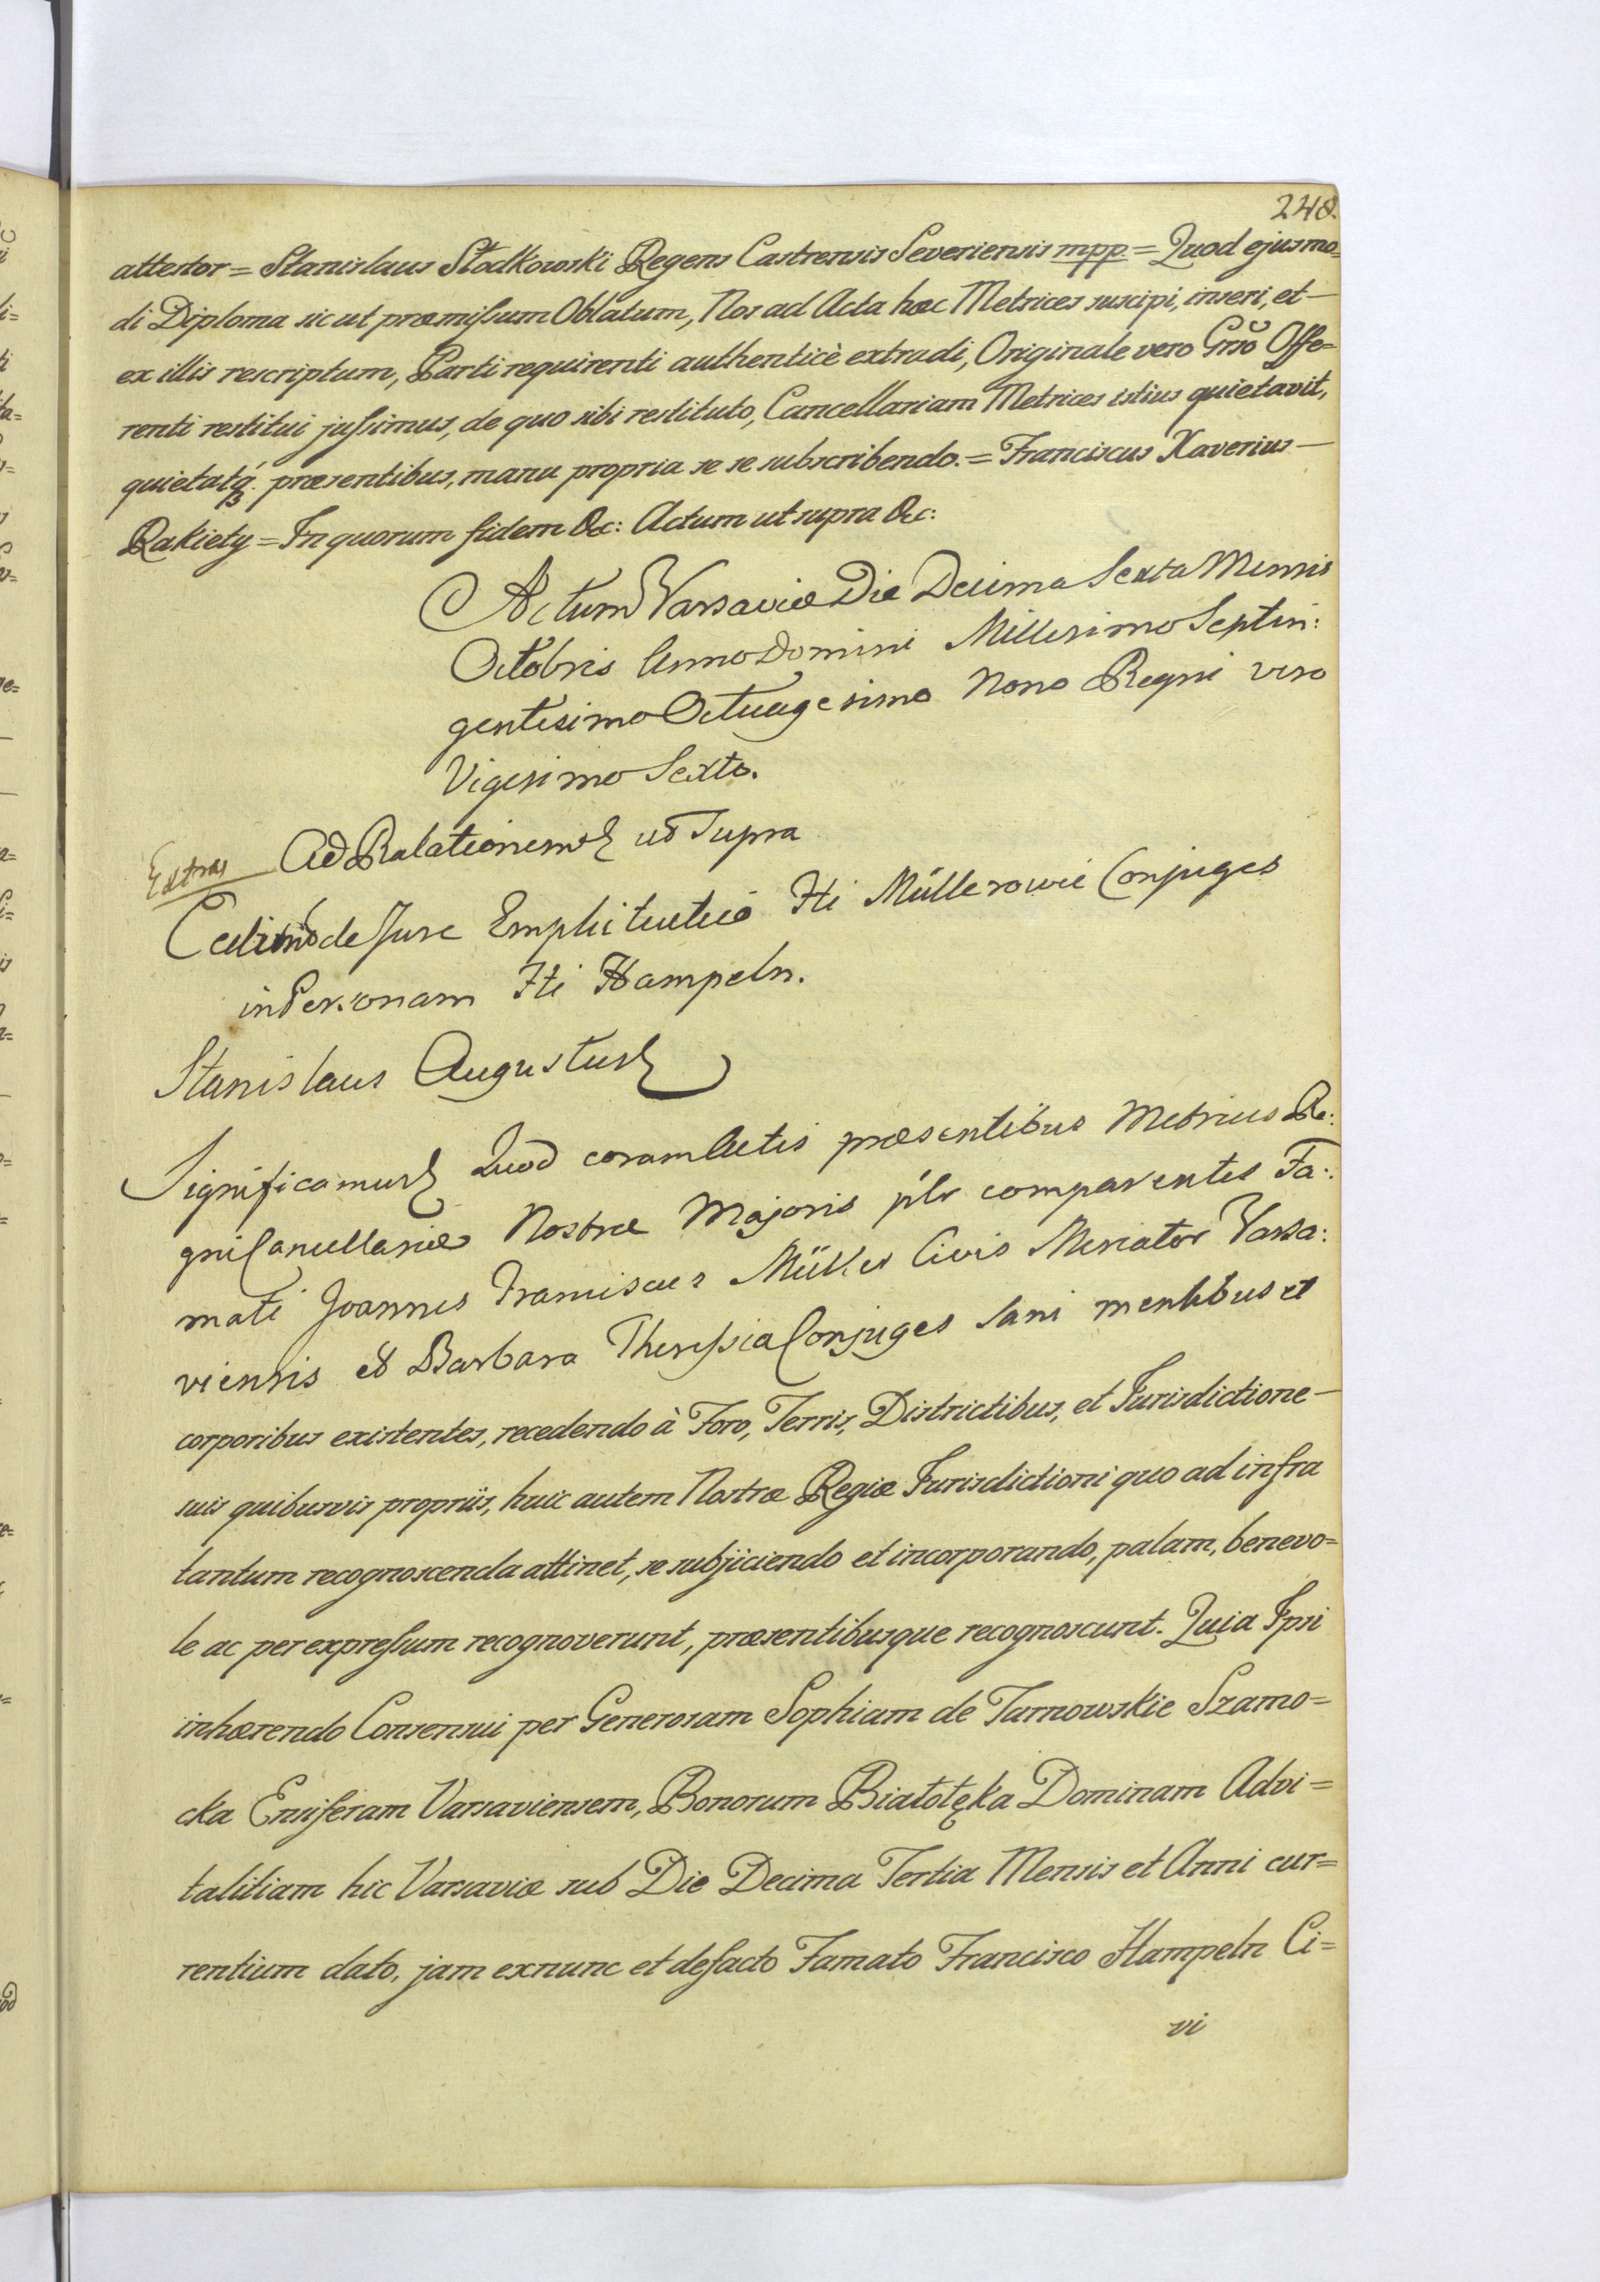 248.
attestor = Stanislaus Słodkowski Regens Castrensis Severiensis mpp. = Quod ejusmo=
di Diploma sic ut præmissum Oblatum, Nos ad Acta hæc Metrices suscipi, inseri, et —
ex illis rescriptum, Parti requirenti authenticè extradi, Originale vero Grso Offe=
renti restitui jussimus, de quo sibi restituto, Cancellariam Metrices istius quietavit,
quietatq. præsentibus, manu propria se se subscribendo. = Franciscus Xaverius —
Rakiety = In quorum fidem &c: Actum ut supra &c:
Actum Varsaviæ Die Decima Sexta Mensis
Octobris Anno Domini Millesimo Septin:
gentesimo Octuagesimo Nono Regni vero
Vigesimo Sexto.
Extras Ad Ralationem ut Supra
de Jure Emphiteutico Hti Müllerowie Conjuges
in Personam Hti Hampeln.
Stanislaus Augustus
Significamus Quod coram Actis præsentibus Metrices Re:
gni Cancellariæ Nostræ Majoris plr comparentes Fa:
mati Joannes Franciscus Müller Civis Mercator Varsa:
viensis et Barbara Theressia Conjuges Sani mentibus et
corporibus existentes, recedendo à Foro, Terris, Districtibus, et Jurisdictione —
suis quibusvis propriis, huic autem Nostræ Regiæ Jurisdictioni quo ad infra
tantum recognoscenda attinet, se subjiciendo et incorporando, palam, benevo=
le ac per expressum recognoverunt, præsentibusque recognoscunt. Quia Ipsi
inhærendo Consensui per Generosam Sophiam de Tarnowskie Szamo=
cka Ensiferam Varsaviensem, Bonorum Białołęka Dominam Advi=
talitiam hic Varsaviæ sub Die Decima Tertia Mensis et Anni cur=
rentium dato, jam exnunc et defacto Famato Francisco Hampeln Ci=
vi